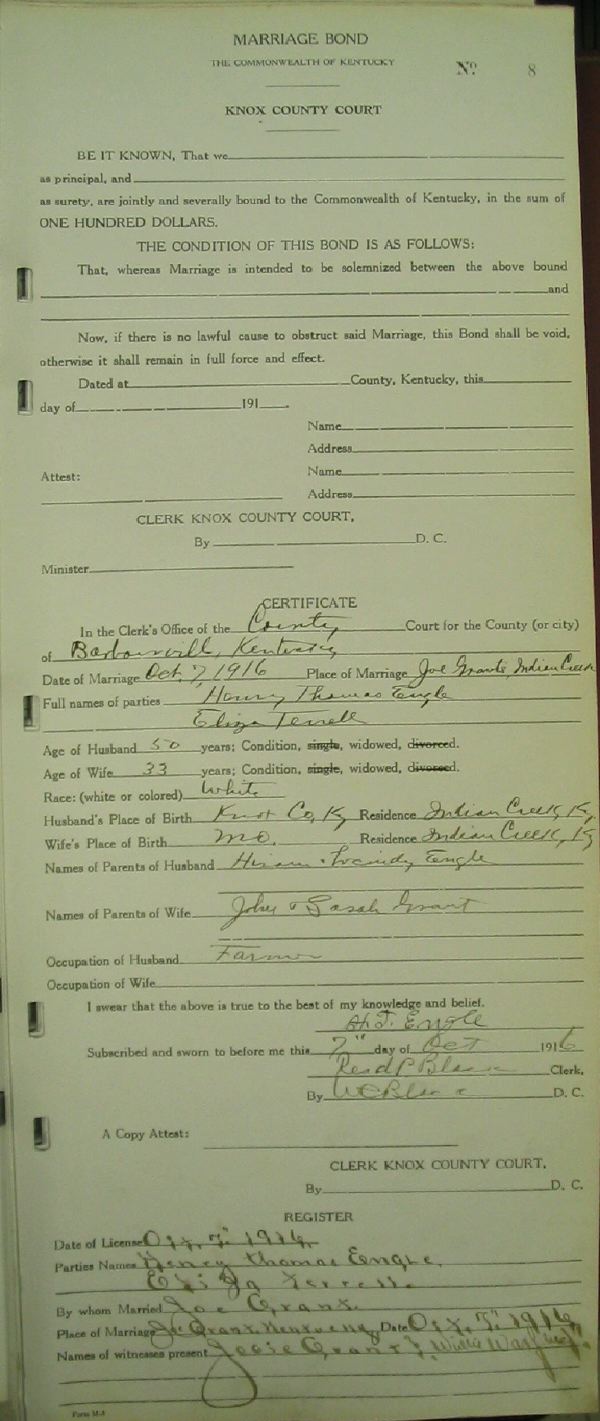 MARRIAGE BOND
THE COMMONWEALTH OF KENTUCKY
No. 8
KNOX COUNTY COURT
BE IT KNOWN, That we
as principal, and
as surety, are jointly and severally bound to the Commonwealth of Kentucky, in the sum of
ONE HUNDRED DOLLARS.
THE CONDITION OF THIS BOND IS AS FOLLOWS:
That, whereas Marriage is intended to be solemnized between the above bound
and
Now, if there is no lawful cause to obstruct said Marriage, this Bond shall be void,
otherwise it shall remain in full force and effect.
Dated at County, Kentucky, this
day of 191
Name
Address
Attest: Name
Address
CLERK KNOX COUNTY COURT.
By D. C.
Minister
CERTIFICATE
In the Clerk's Office of the County Court for the County (or city)
of Barbourville, Kentucky
Date of Marriage Oct. 7, 1916 Place of Marriage Joe Grants Indian Creek
Full names of parties Henry Thomas Engle
Eliza Terrell
Age of Husband 50 years; Condition, single, widowed, divorced.
Age of Wife 33 years; Condition, single, widowed, divorced.
Race: (white or colored) White
Husband's Place of Birth Knox Co, Ky Residence Indian Creek, Ky,
Wife's Place of Birth Mo. Residence Indian Creek, Ky
Names of Parents of Husband Hiram & Engle
Names of Parents of Wife & Sarah Grant
Occupation of Husband Farmer
Occupation of Wife
I swear that the above is true to the best of my knowledge and belief.
H.T. Engle
Subscribed and sworn to before me this 7" day of Oct 1916
Read P Black Clerk,
By D. C.
A Copy Attest:
CLERK KNOX COUNTY COURT.
By D. C.
REGISTER
Date of License Oct. 7" 1916.
Parties Names Henry Thomas Engle.
Eliza Terrell.
By whom Married Joe Grant.
Place of Marriage Joe Grant, Kentucky Date Oct. 7" 1916
Names of witnesses present Grant & Willie
Form M-3